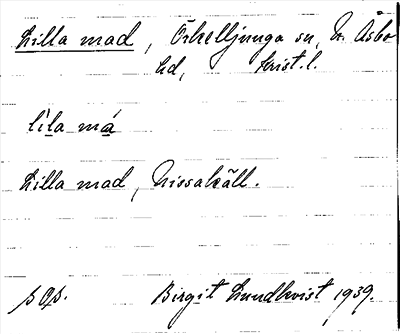 Lilla mad, Örkelljunga sn, N. Åsbo
hd, Krist. l.
lìla má
Lilla mad, Nissakäll.
s Op.
Birgit Lundkvist 1939.